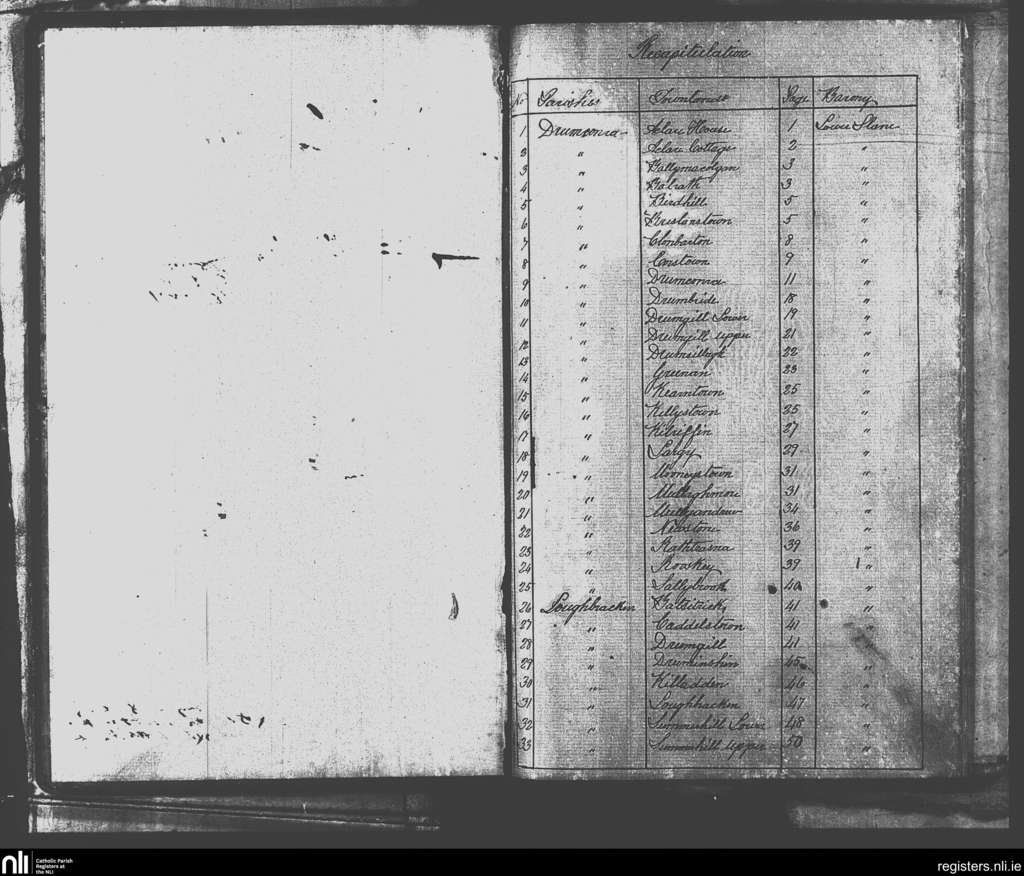 Recapitulation
No Parishes Townlands Page Barony
1 Drumconra Aclare House 1 Lower Slane
2 " Aclare Cottage 2 "
3 " Ballymacdyan 3 "
4 " Balrath 3 "
5 " Birdhill 5 "
6 " 5 "
7 " Clonbarton 8 "
8 " Corstown 9 "
9 " Drumconra 11 "
10 " Drumbride 18 "
11 " Drumgill Lower 19 "
12 " Drumgill upper 21 "
13 " 22 "
14 " Greenan 23 "
15 " Kearntown 25 "
16 " Kellystown 25 "
17 " Kilriffin 27 "
18 " Largy 29 "
19 " Mooneystown 31 "
20 " Mullaghmore 31 "
21 " 34 "
22 " Newstone 36 "
23 " Rathtrasna 39 "
24 " Rooskey 39 "
25 " Sallybrook 40 "
26 Loughbracken Balpitrick 41 "
27 " Caddelstown 41 "
28 " Drumgill 41 "
29 " Druminshin 45 "
30 " Killadden 46 "
31 " Loughbracken 47 "
32 " Summerhill Lower 48 "
33 " Summerhill upper 50 "
nli Catholic Parish
Registers at
the NLI
registers.nli.ie